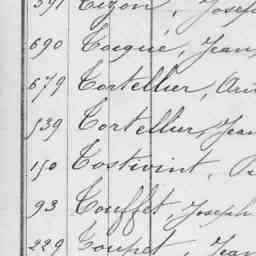 591 Tizon, Joseph
690 Toqué, Jean,
679 Tortellier,
539 Tortellier, Jean
150 Tostivint,
93 Touffet, Joseph
229 Toupet, Jean